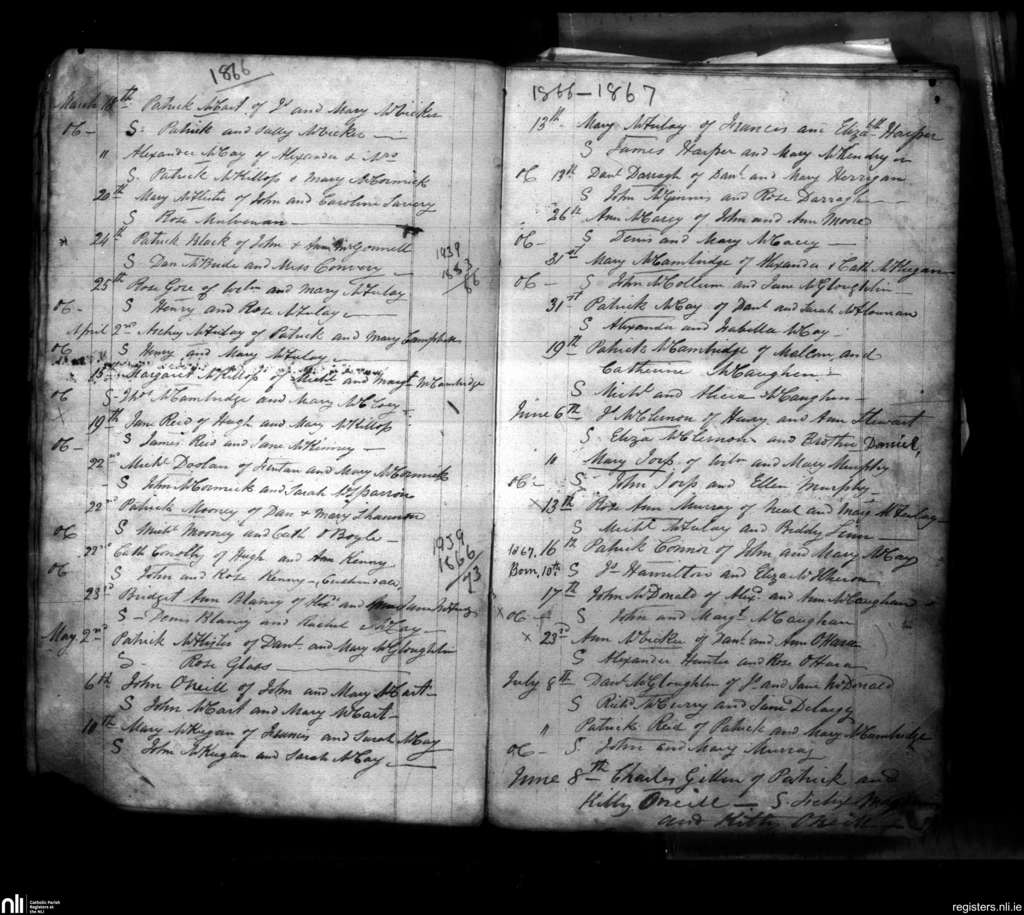 1866
March 18th Patrick McCart of Js and Mary McVicker
06 - S. Patrick and Sally McVicker
" Alexander McCay of Alexander & Mrs
S. Patrick McKillop & Mary McCormick
20th Mary McAlister of John and Caroline
S Rose Mulvenan
24th Patrick Black of John & Ann McGonnell
S Dan McBride and Miss Convery
1939
1883
66
25th Rose Gore of Willm and Mary McAulay
06 - S Henry and Rose McAulay
April 2nd Archey McAulay of Patrick and Mary Campbell
06 S Henry and Mary McAulay
15th Margaret McKillop of Michl and Margt McCambridge
06 S Thos McCambridge and Mary
19th Jane Reid of Hugh and Mary McKillop
06 - S James Reid and Jane McKinney
22nd Michl Doolan of Fintan and Mary McCormick
S John McCormick and Sarah McSparron
22nd Patrick Mooney of Dan & Mary Shannon
06 S Michl Mooney and Cath O'Boyle
1939
1866
73
22nd Cath Conolly of Hugh and Ann Kenny
06 S John and Rose Kenny - Cushendall
23rd Bridget Ann Blaney of and Jane
S - Denis Blaney and Rachel McCay
May 2nd Patrick McAlister of Danl and Mary McGloughlin
S - Rose Glass
6th John O'Neill of John and Mary McCart
S John McCart and Mary McCart
10th Mary McKeegan of Francis and Sarah McCay
S John McKeegan and Sarah McCay
1866-1867
13th Mary McAulay of Francis and Elizath Harper
S James Harper and Mary McKendry
06 13th Danl Darragh of Danl and Mary Kerrigan
S John McGinnis and Rose Darragh
26th Ann McCarey of John and Ann Moore
06 - S Denis and Mary McCarey
31st Mary McCambridge of Alexander & Cath McKeegan
06 - S John McCollum and Jane McGloughlin
31st Patrick McCay of Danl and Sarah
S Alexander and Isabella McCay
19th Patrick McCambridge of Malcom and
Catherine McCaughen
S Michl and Alicia McCaughen
June 6th Js McClernon of Henry and Ann Stewart
S Eliza McClernon and Brother Daniel,
10 Mary Torp of Willm and Mary Murphy
06 - S John Torp and Ellen Murphy
x 13th Rose Ann Murray of Neal and Mary McAulay
S Michl McAulay and Biddy Linn
1867. 16th Patrick Connor of John and Mary McCay
Born, 10th S Js Hamilton and Eliza
17th John McDonald of Alexr and Ann McCaughan
06 - S John and Margt McCaughan
x 23rd Ann McVicker of Danl and Ann O'Hara
S Alexander Hunter and Rose O'Hara
July 8th Danl McGloughlin of Js and Jane McDonald
S Richd McCurry and Jane Delargy
" Patrick Reid of Patrick and Mary McCambridge
06 - S John and Mary Murray
June 8th Charles of Patrick and
Kitty O'Neill - S.
and Kitty O'Neill
nli
Catholic Parish
Registers at
the NLI
registers.nli.ie